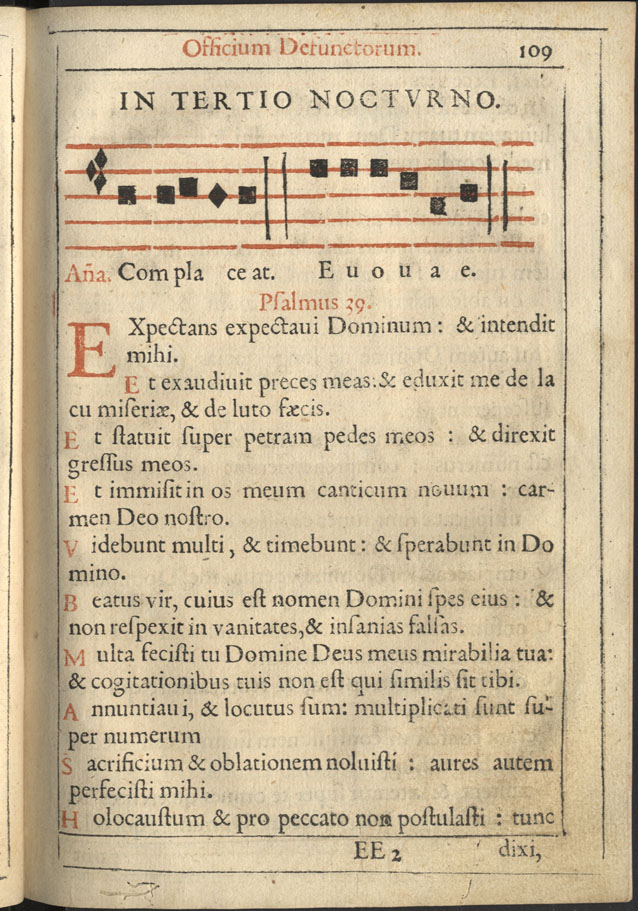 Officium Defunctorum. 109
IN TERTIO NOCTVRNO.
Aña. Com pla ce at. E u o u a e.
Pſalmus 39.
EXpectans expectaui Dominum : & intendit
mihi.
Et exaudiuit preces meas: & eduxit me de la
cu miſeriæ, & de luto fæcis.
Et ſtatuit ſuper petram pedes meos : & direxit
greſſus meos.
Et immiſit in os meum canticum nouum : car-
men Deo noſtro.
Videbunt multi, & timebunt : & ſperabunt in Do
mino.
Beatus vir, cuius eſt nomen Domini ſpes eius : &
non reſpexit in vanitates, & inſanias falſas.
Multa feciſti tu Domine Deus meus mirabilia tua:
& cogitationibus tuis non eſt qui ſimilis ſit tibi.
Annuntiaui, & locutus ſum: multiplicati ſunt ſu-
per numerum
Sacrificium & oblationem noluiſti : aures autem
perfeciſti mihi.
Holocauſtum & pro peccato non poſtulaſti : tunc
EE 2 dixi,